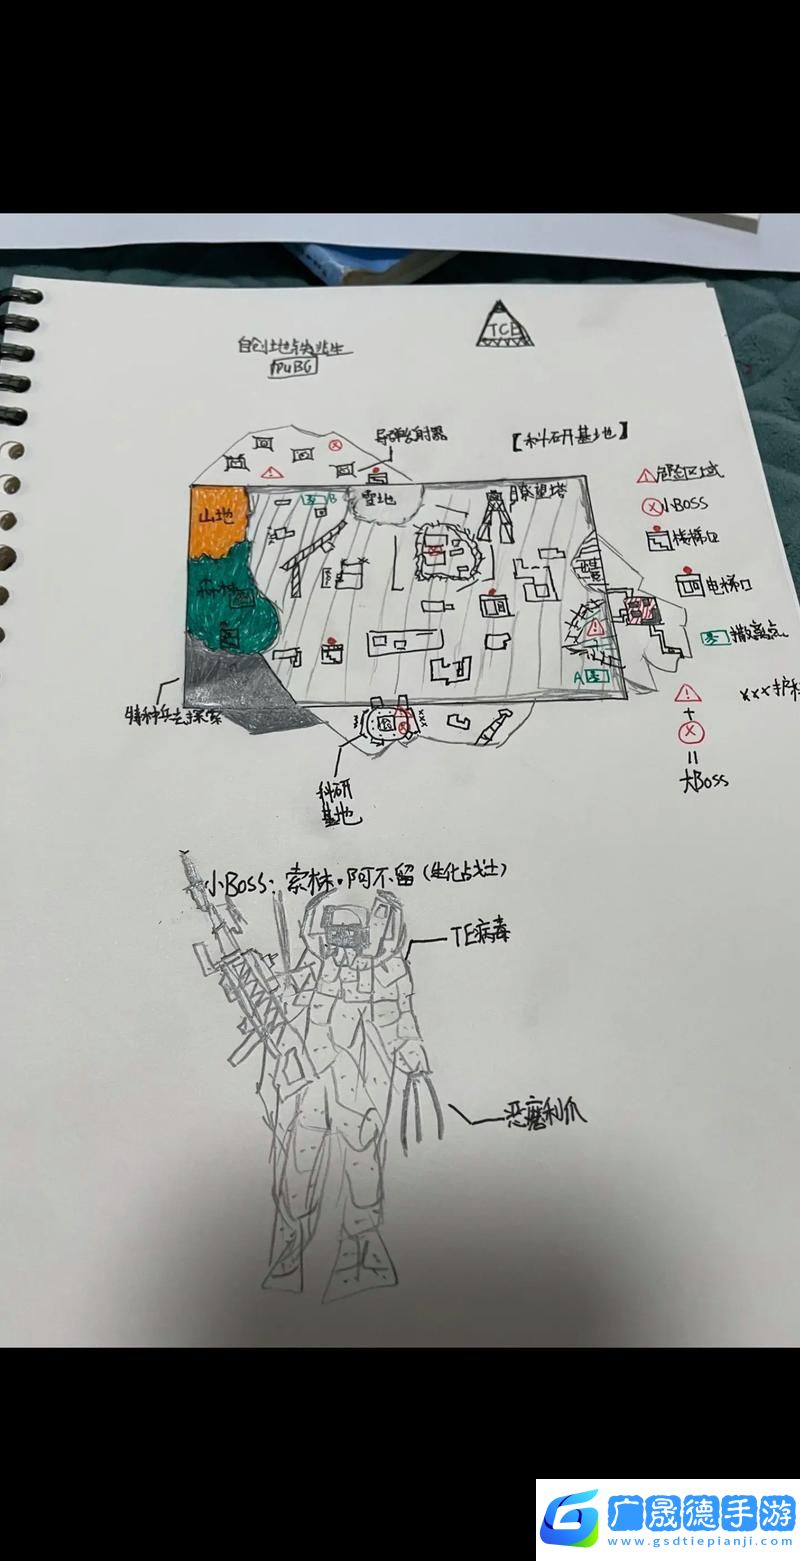 自创地铁逃生
PUBG
TCE
导弹发射器
【科研基地】
危险区域
小BOSS
楼梯口
电梯口
撤离点
大BOSS
山地
雪地
瞭望塔
森林
B
A
特种兵去探索
科研
基地
小BOSS：索林·阿不留（生化战士）
TE病毒
恶魔利爪
广晟德手游
www.gsdtiepianji.com